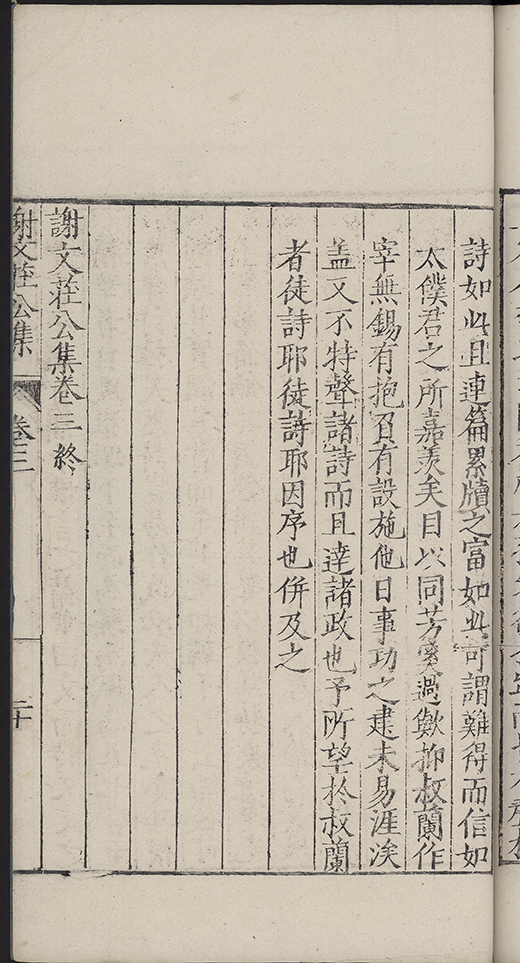 詩如此且連篇累牘之富如此可謂難得而信如
太僕君之所嘉羨矣目以同芳奚過歟抑叔蘭作
宰無錫有抱召有設施他日事功之建未易涯涘
盖又不特聲諸詩而且達諸政也予所望於叔蘭
者徒詩耶徒詩耶因序也併及之
謝文莊公集卷三終
謝文莊公集
卷三
二十